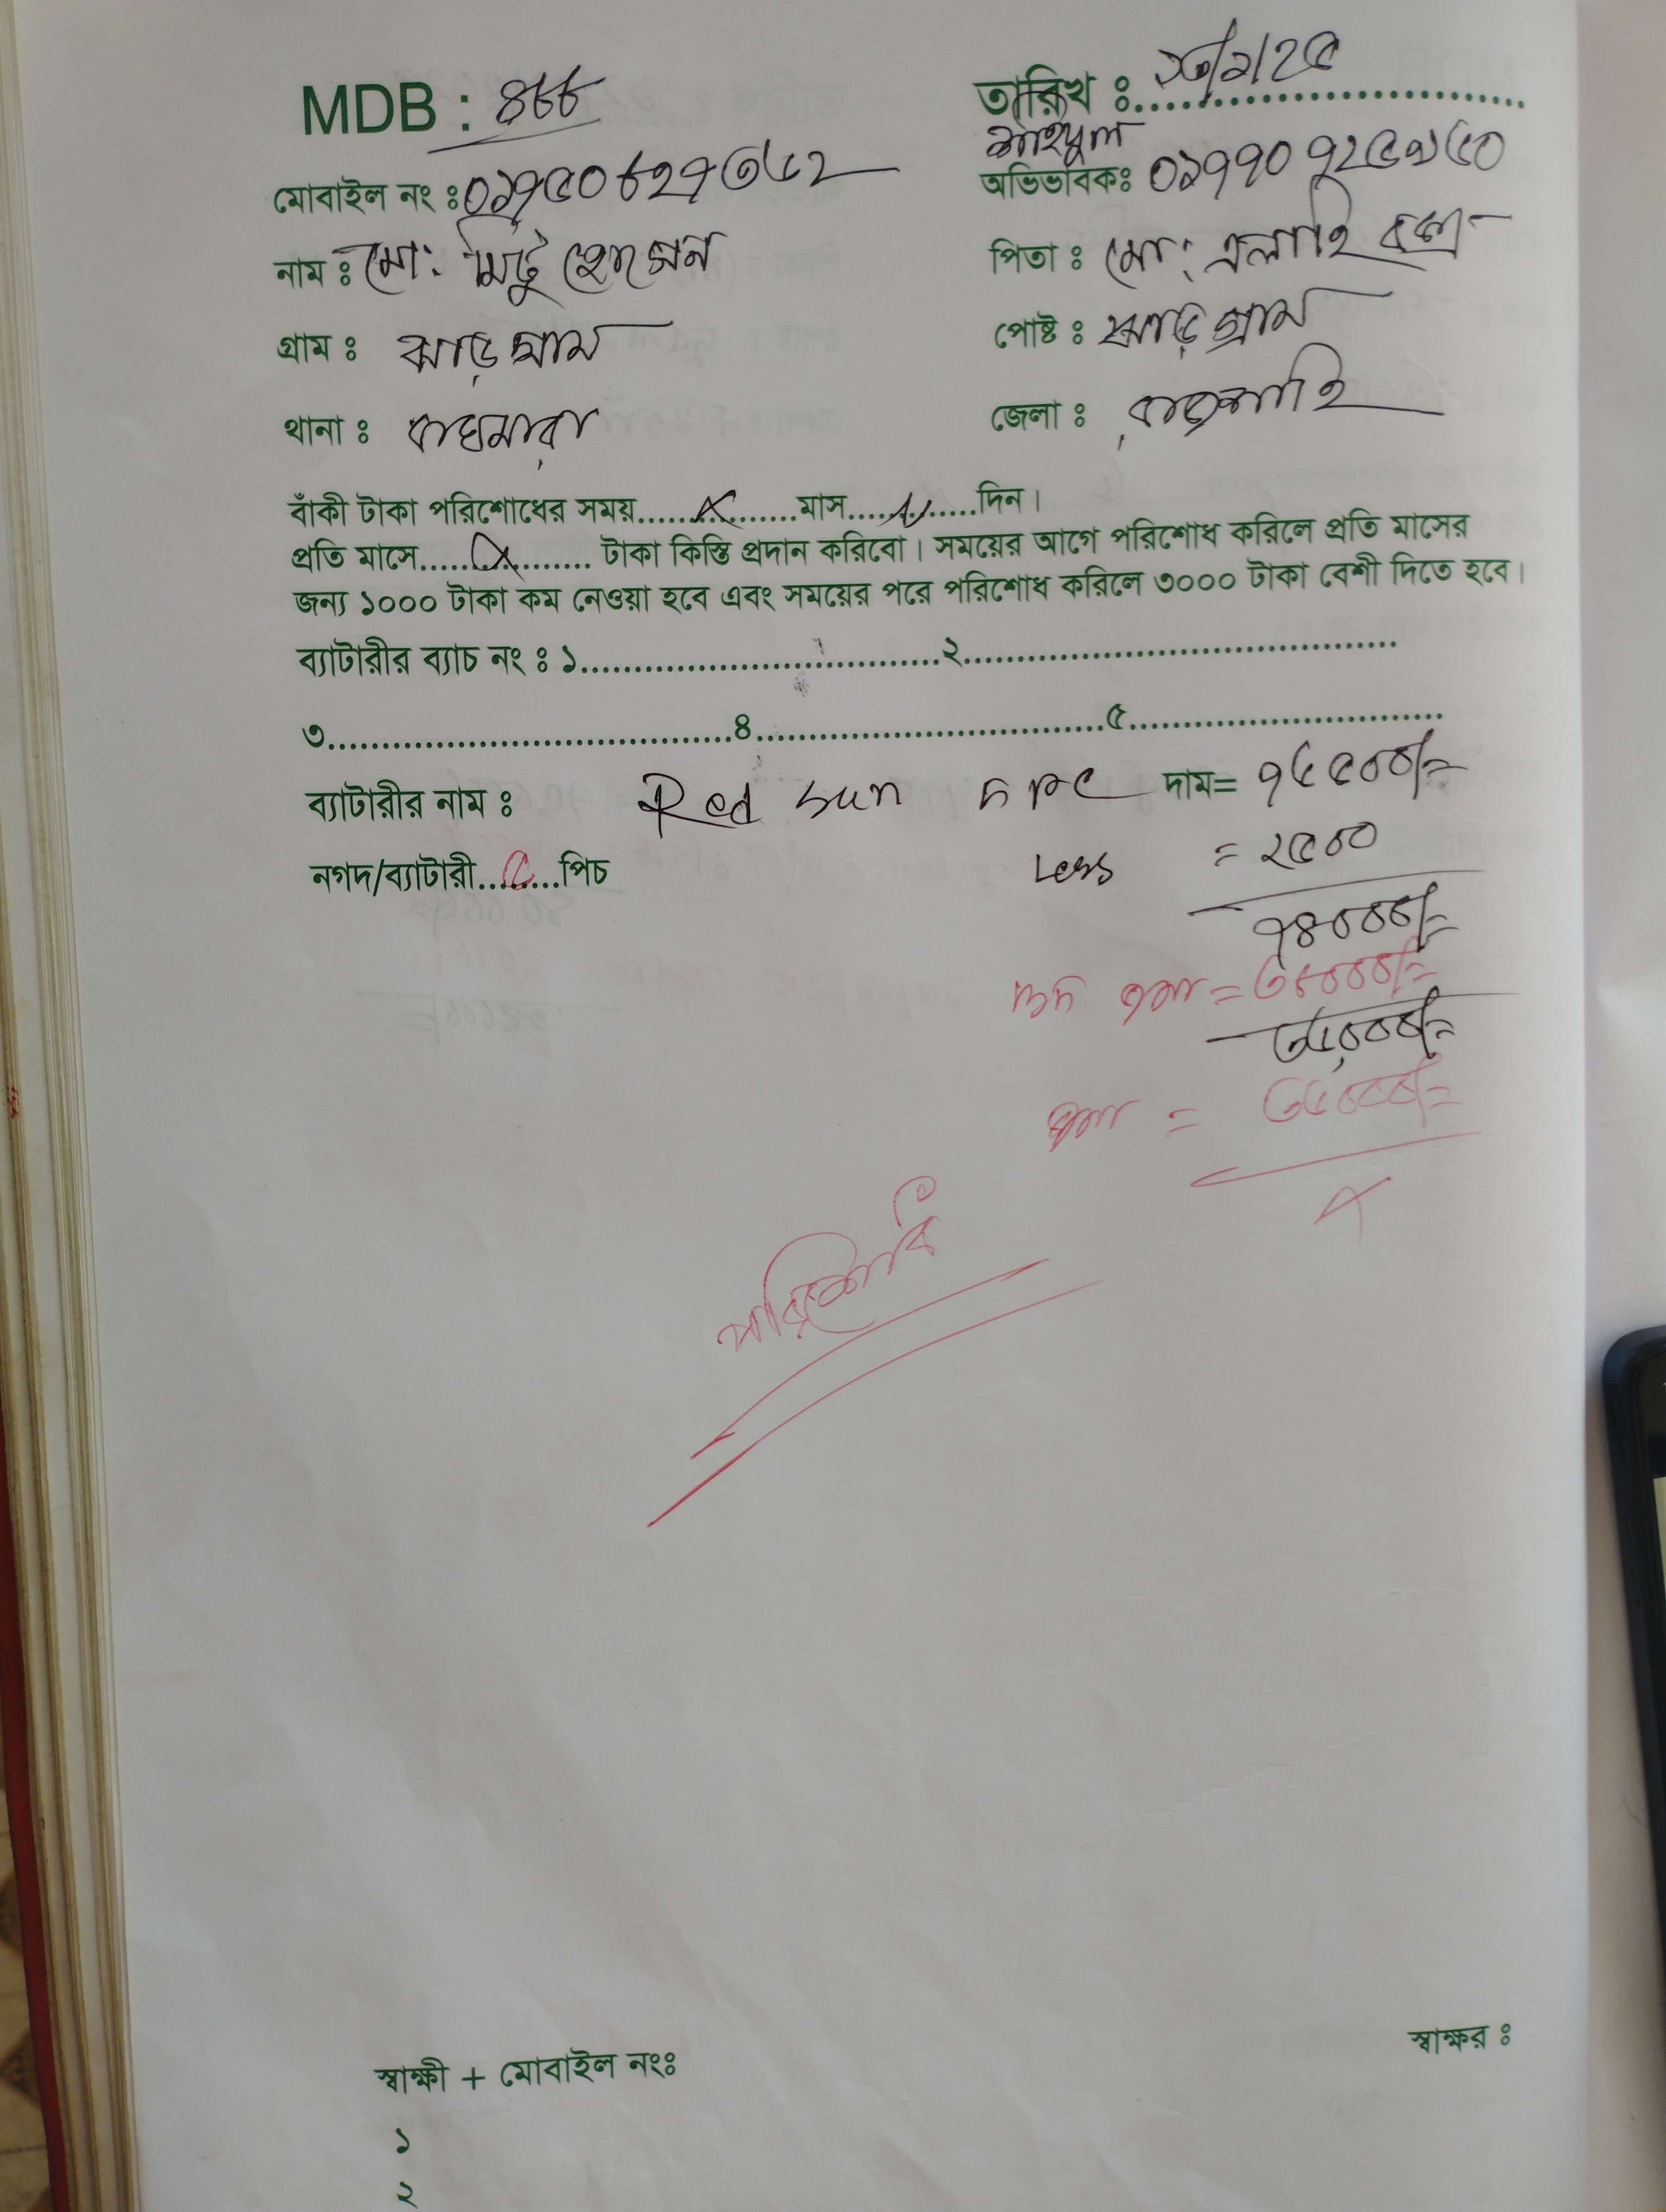 MDB : ৪৮৮
তারিখ :
মোবাইল নং : ০১৭৫০৮২৭৩৬২
অভিভাবক: ০১৭৭০৭২৫৯৬০
নাম : মো: মিঠু হোসেন
পিতা : মো: এলাহি বক্স
গ্রাম : ঝাড়গ্রাম
পোষ্ট : ঝাড়গ্রাম
থানা : বাঘমারা
জেলা : রাজশাহি
বাঁকী টাকা পরিশোধের সময়.......X.......মাস.......দিন।
প্রতি মাসে.......X....... টাকা কিস্তি প্রদান করিবো। সময়ের আগে পরিশোধ করিলে প্রতি মাসের
জন্য ১০০০ টাকা কম নেওয়া হবে এবং সময়ের পরে পরিশোধ করিলে ৩০০০ টাকা বেশী দিতে হবে।
ব্যাটারীর ব্যাচ নং : ১.......২.......
৩.......৪.......৫.......
ব্যাটারীর নাম : Red sun 5 pc দাম= ৭৬৫০০/=
নগদ/ব্যাটারী.......পিচ
Less = ২৫০০
৭৪০০০/=
জমা = ৩৮০০০/=
৩৬০০০/=
জমা = ৩৬০০০/=
X
পরিশোধ
স্বাক্ষর :
স্বাক্ষী + মোবাইল নং:
১
২